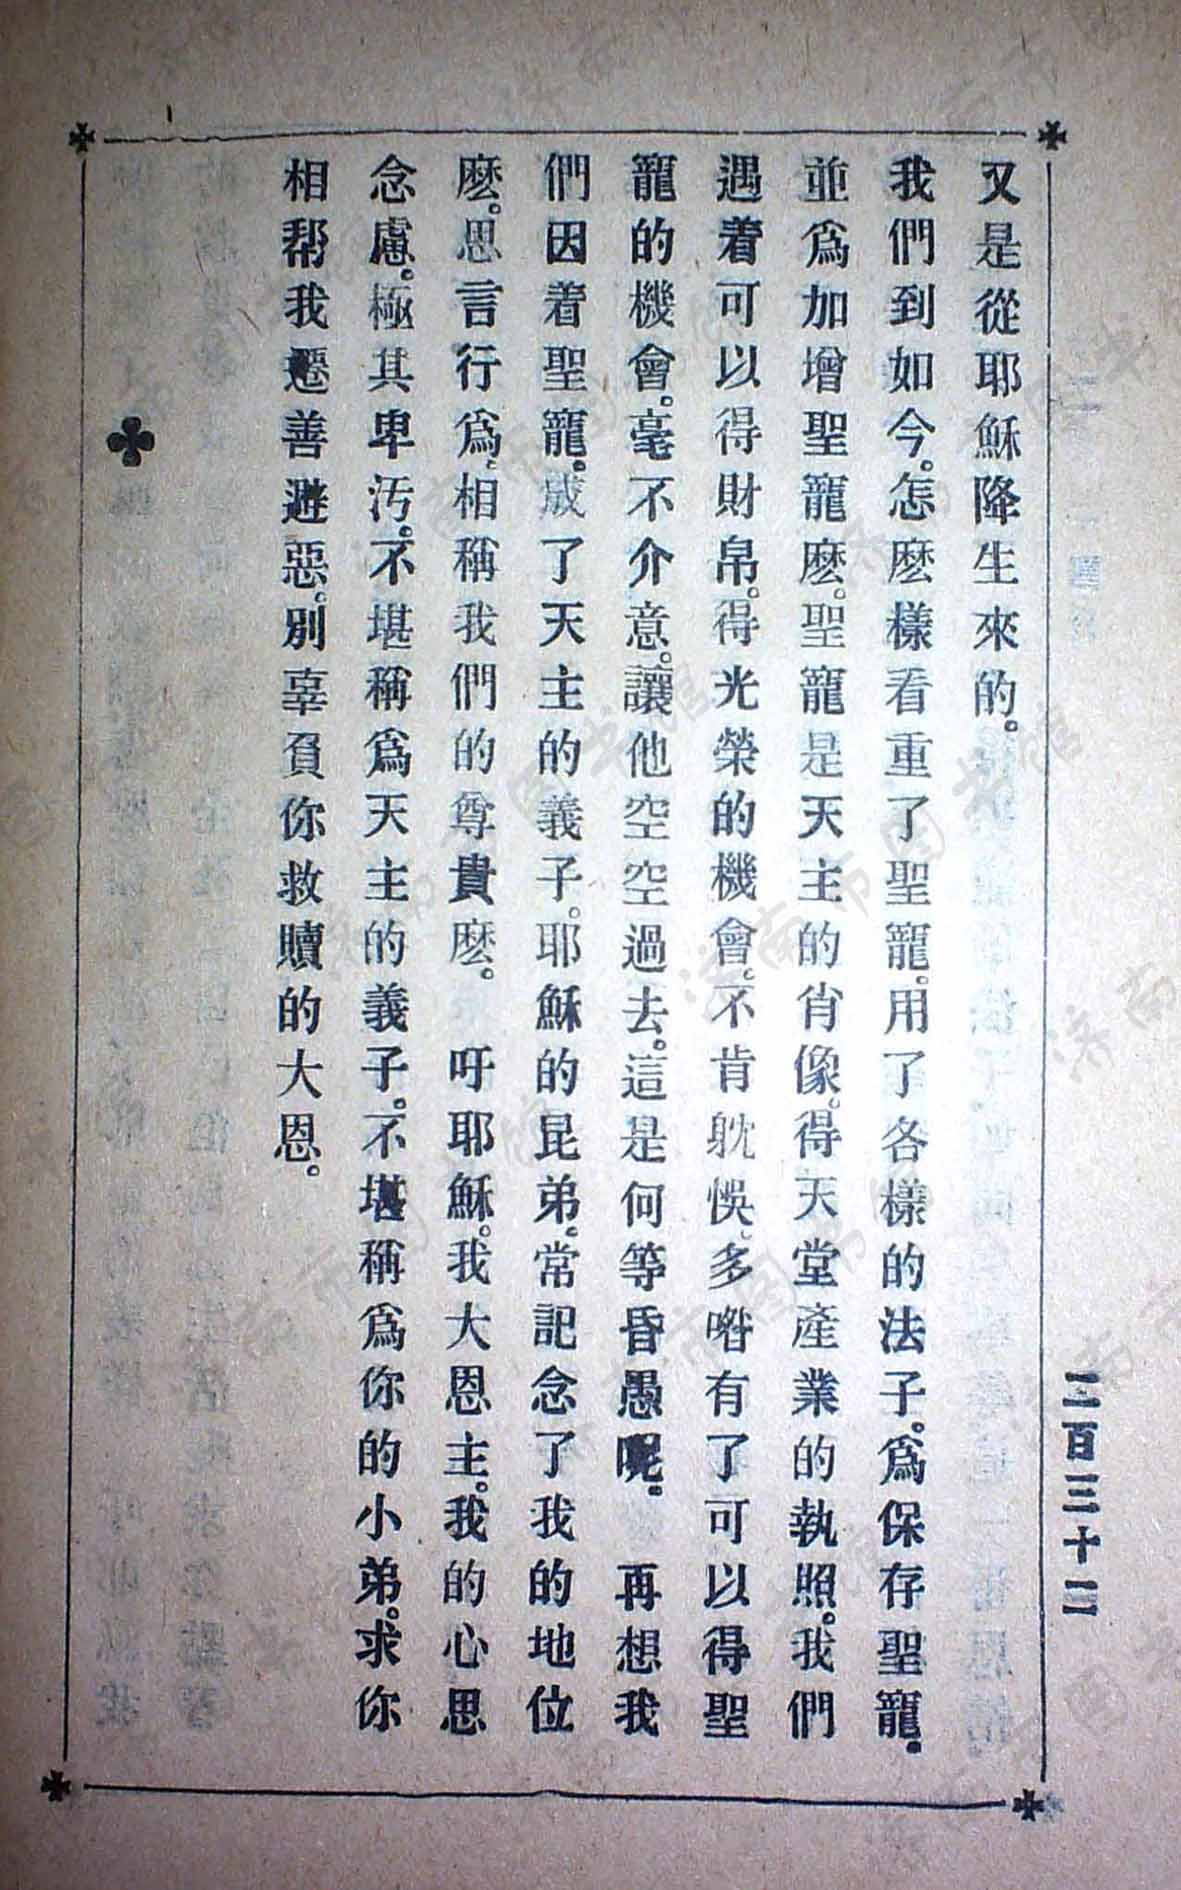 又是從耶穌降生來的。
我們到如今。怎麽樣看重了聖寵。用了各樣的法子。爲保存聖寵。
並爲加增聖寵麽。聖寵是天主的肖像。得天堂產業的執照。我們
遇着可以得財帛。得光榮的機會。不肯躭悞。多喒有了可以得聖
寵的機會。毫不介意。讓他空空過去。這是何等昏愚呢。　再想我
們因着聖寵。成了天主的義子。耶穌的昆弟。常記念了我的地位
麽。思言行爲。相稱我們的尊貴麽。　吁耶穌。我大恩主。我的心思
念慮。極其卑汚。不堪稱爲天主的義子。不堪稱爲你的小弟。求你
相帮我遷善避惡。別辜負你救贖的大恩。
二百三十二